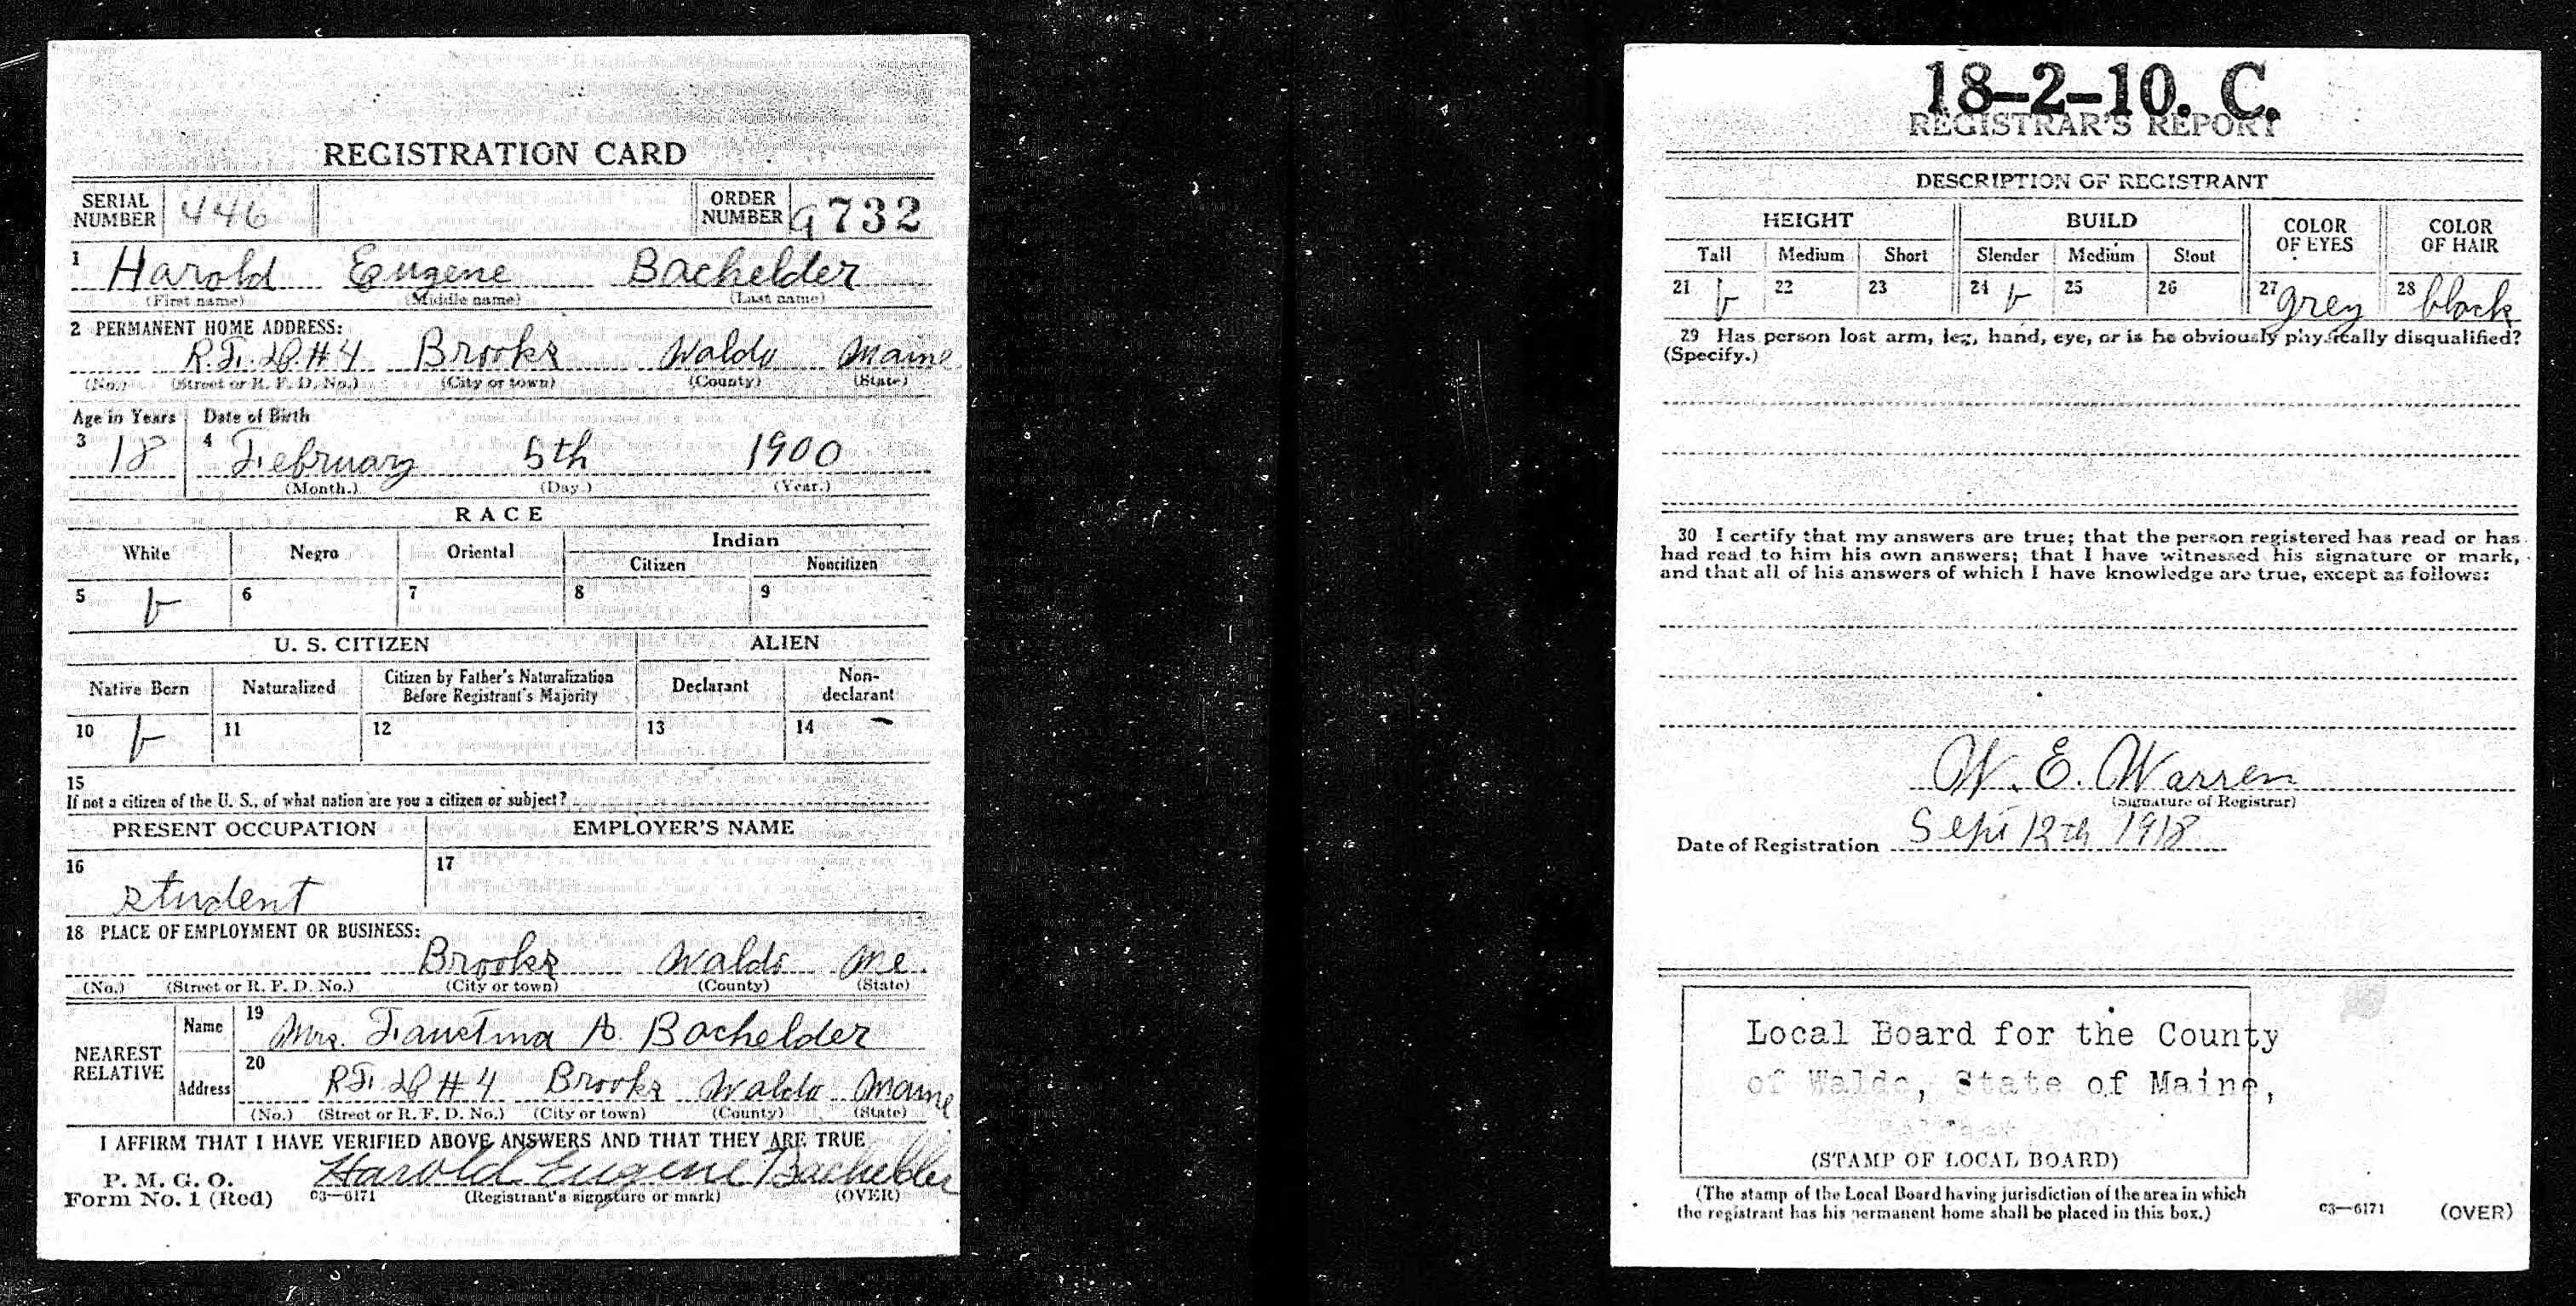 REGISTRATION CARD
SERIAL NUMBER 446 ORDER NUMBER 9732
1 Harold Eugene Bachelder
(First name) (Middle name) (Last name)
2 PERMANENT HOME ADDRESS:
R.F.D.#4 Brooks Waldo Maine
(No.) (Street or R. F. D. No.) (City or town) (County) (State)
Age in Years Date of Birth
3 18 4 February 5th 1900
(Month.) (Day.) (Year.)
RACE
White Negro Oriental Indian
Citizen Noncitizen
5 6 7 8 9
U. S. CITIZEN ALIEN
Native Born Naturalized Citizen by Father's Naturalization Before Registrant's Majority Declarant Non-declarant
10 11 12 13 14
15
If not a citizen of the U. S., of what nation are you a citizen or subject?
PRESENT OCCUPATION EMPLOYER'S NAME
16 student 17
18 PLACE OF EMPLOYMENT OR BUSINESS:
Brooks Waldo Me.
(No.) (Street or R. F. D. No.) (City or town) (County) (State)
NEAREST RELATIVE
Name 19 Mrs. Faustina A. Bachelder
Address 20 R.F.D #4 Brooks Waldo Maine
(No.) (Street or R. F. D. No.) (City or town) (County) (State)
I AFFIRM THAT I HAVE VERIFIED ABOVE ANSWERS AND THAT THEY ARE TRUE
P. M. G. O.
Form No. 1 (Red) 03—6171 Harold Eugene Bachelder
(Registrant's signature or mark) (OVER)
18-2-10. C.
REGISTRAR'S REPORT
DESCRIPTION OF REGISTRANT
HEIGHT BUILD COLOR OF EYES COLOR OF HAIR
Tall Medium Short Slender Medium Stout
21 22 23 24 25 26 27 grey 28 black
29 Has person lost arm, leg, hand, eye, or is he obviously physically disqualified?
(Specify.)
30 I certify that my answers are true; that the person registered has read or has
had read to him his own answers; that I have witnessed his signature or mark,
and that all of his answers of which I have knowledge are true, except as follows:
W. E. Warren
(Signature of Registrar)
Date of Registration Sept 12th 1918
Local Board for the County
of Waldo, State of Maine,
(STAMP OF LOCAL BOARD)
(The stamp of the Local Board having jurisdiction of the area in which
the registrant has his permanent home shall be placed in this box.)
03—6171 (OVER)